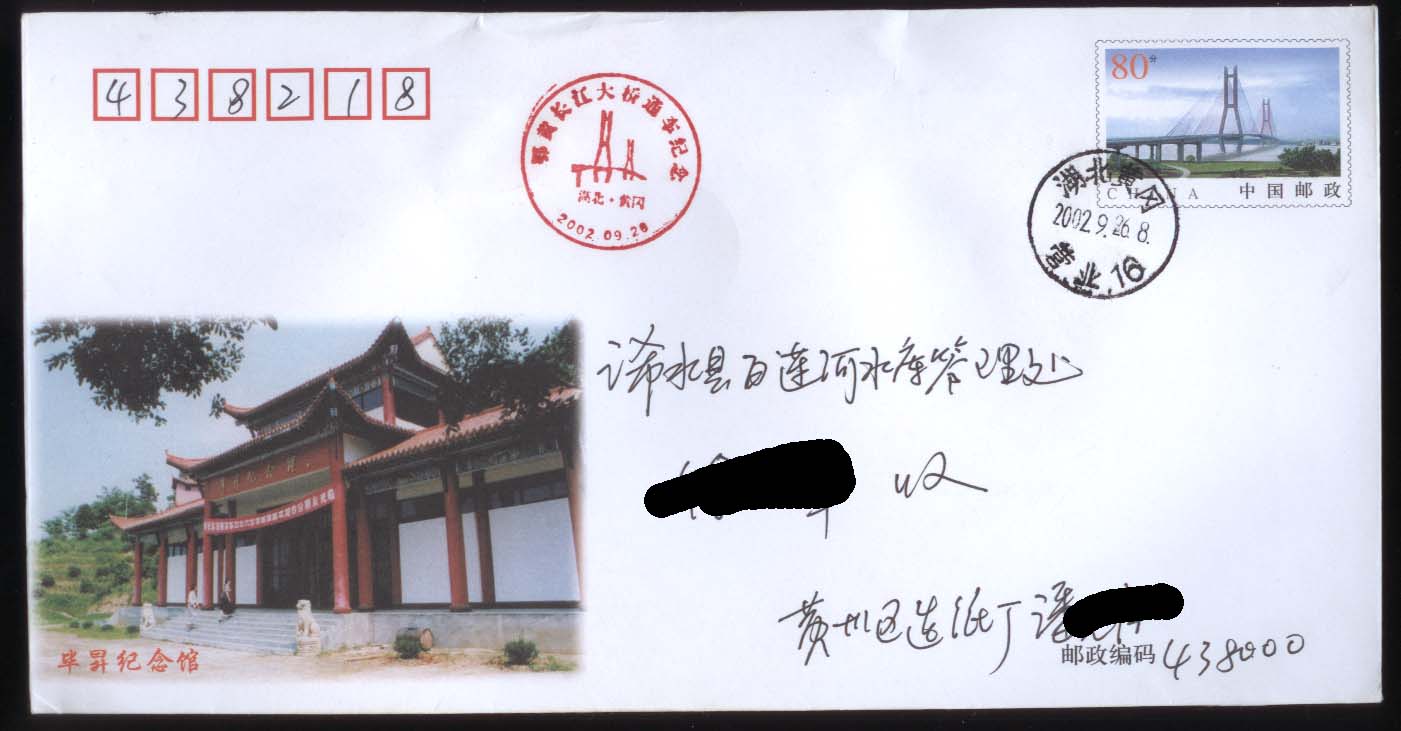 438218
鄂黄长江大桥通车纪念
湖北·黄冈
2002.09.26
80分
CHINA 中国邮政
湖北黄冈
2002.9.26.8.
营业 16
浠水县白莲河水库管理处
收
黄州区造纸厂潘
邮政编码 438000
毕昇纪念馆